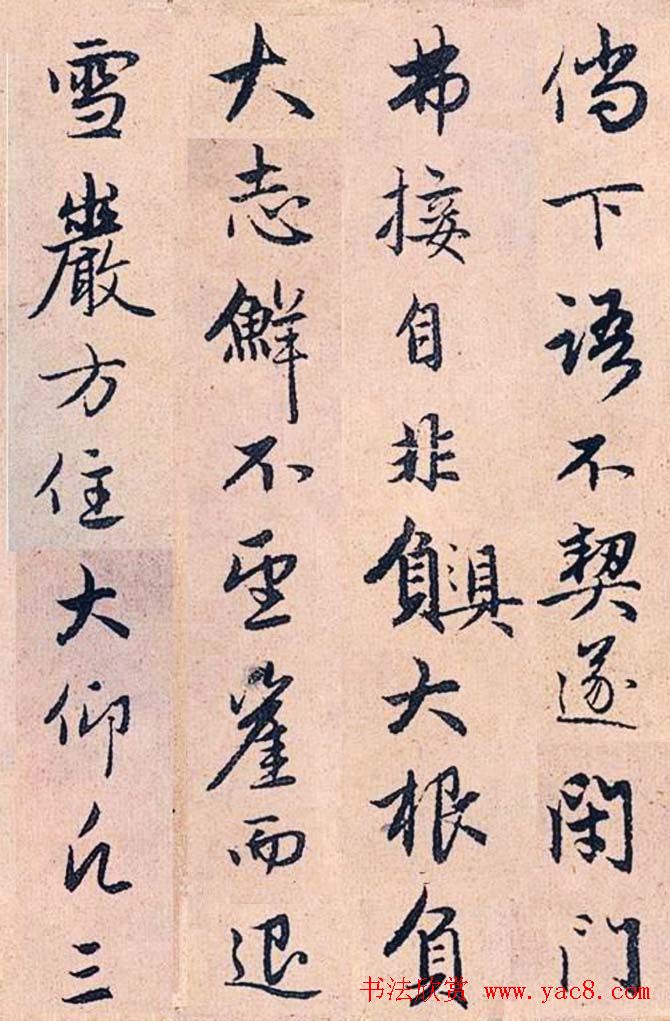 倘下語不契遂閉門
弗接自非負具大根負
大志鮮不望崖而退
雪巖方住大仰凡三
书法欣赏 www.yac8.com